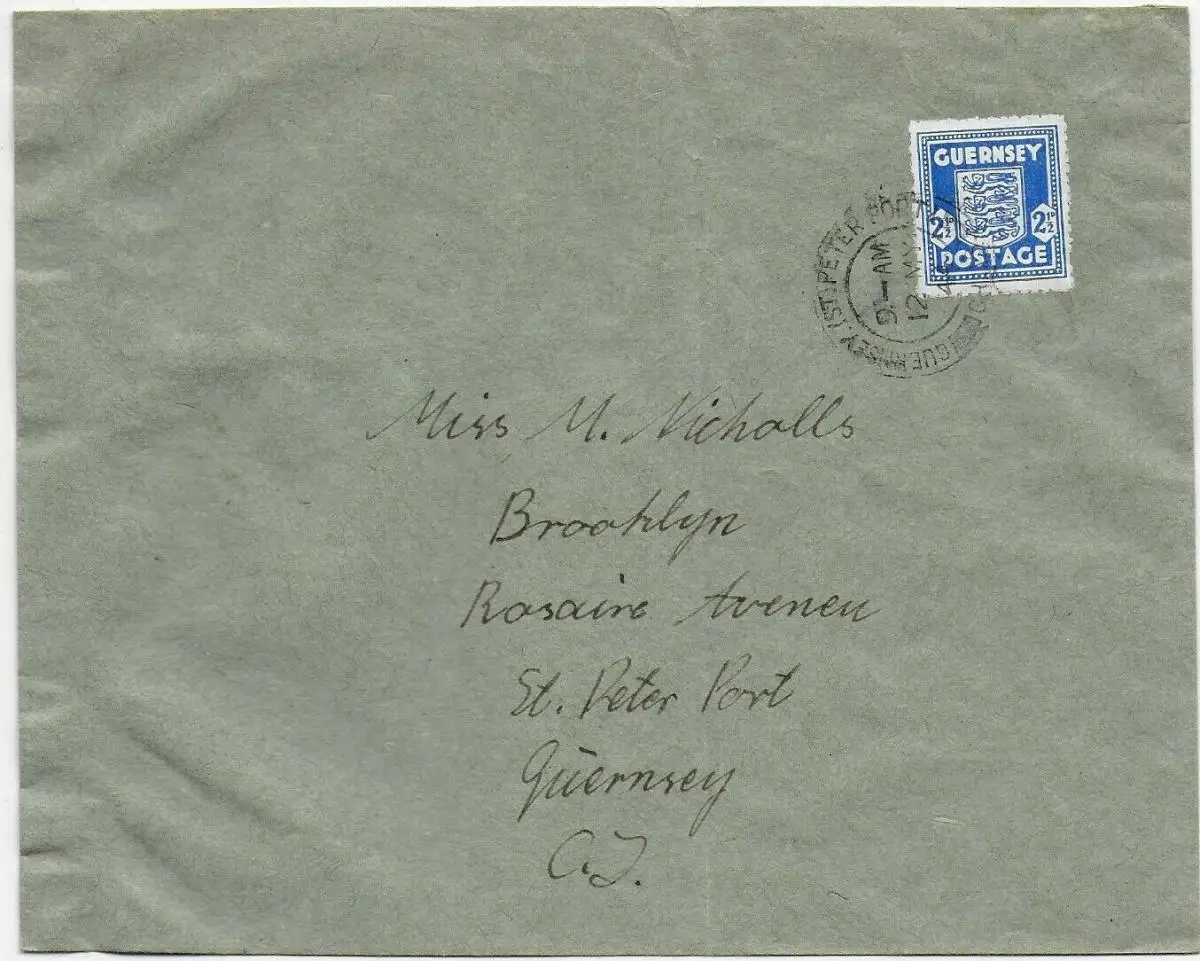 GUERNSEY
2½ᴾ 2½ᴾ
POSTAGE
GUERNSEY (ST PETER PORT)
9 — AM
12 MY
Miss M. Nicholls
Brooklyn
Rosaire Aveneu
St. Peter Port
Guernsey
C.I.